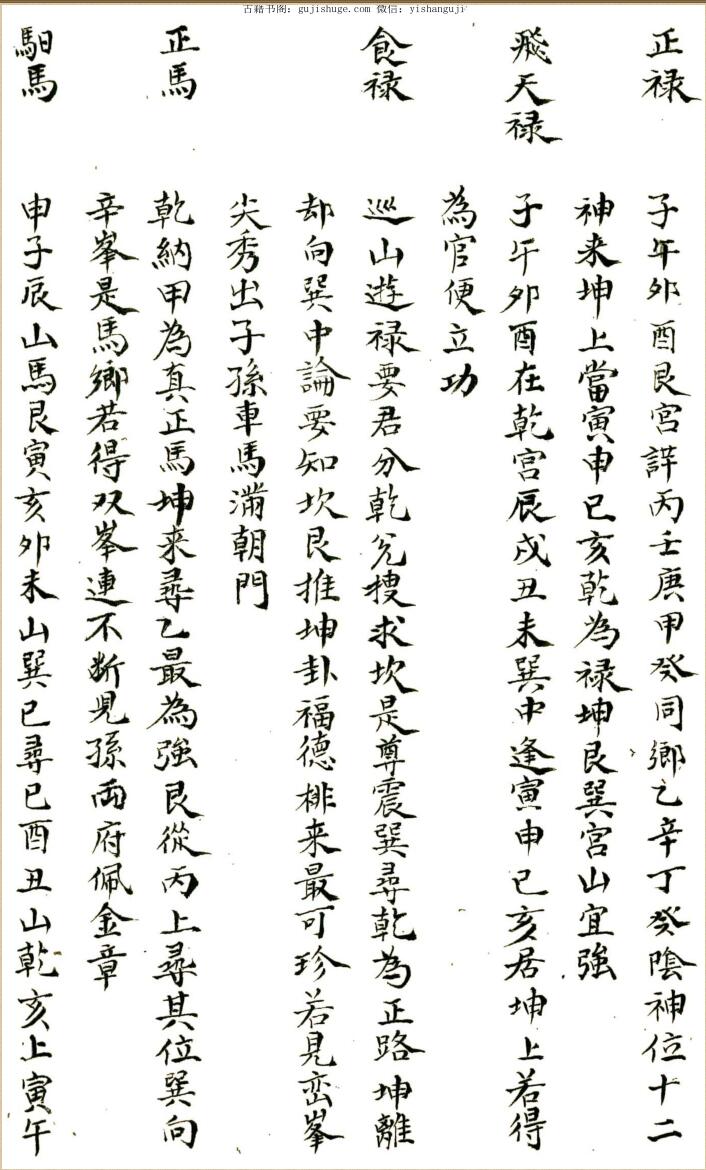 古籍书阁：gujishuge.com 微信：yishanguji
正禄 子午卯酉艮宫詳丙壬庚甲癸同鄉乙辛丁癸陰神位十二
神来坤上當寅申巳亥乾為禄坤艮巽宫山宜強
飛天禄 子午卯酉在乾宫辰戌丑未巽中逢寅申巳亥居坤上若得
為官便立功
食禄 巡山遊禄要君分乾兊搜求坎是尊震巽尋乾為正路坤離
却向巽中論要知坎艮推坤卦福德排来最可珍若見峦峯
尖秀出子孫車馬滿朝門
正馬 乾納甲為真正馬坤来尋乙最為強艮從丙上尋其位巽向
辛峯是馬鄉若得双峯連不断児孫両府佩金章
馹馬 申子辰山馬艮寅亥卯未山巽巳尋巳酉丑山乾亥上寅午